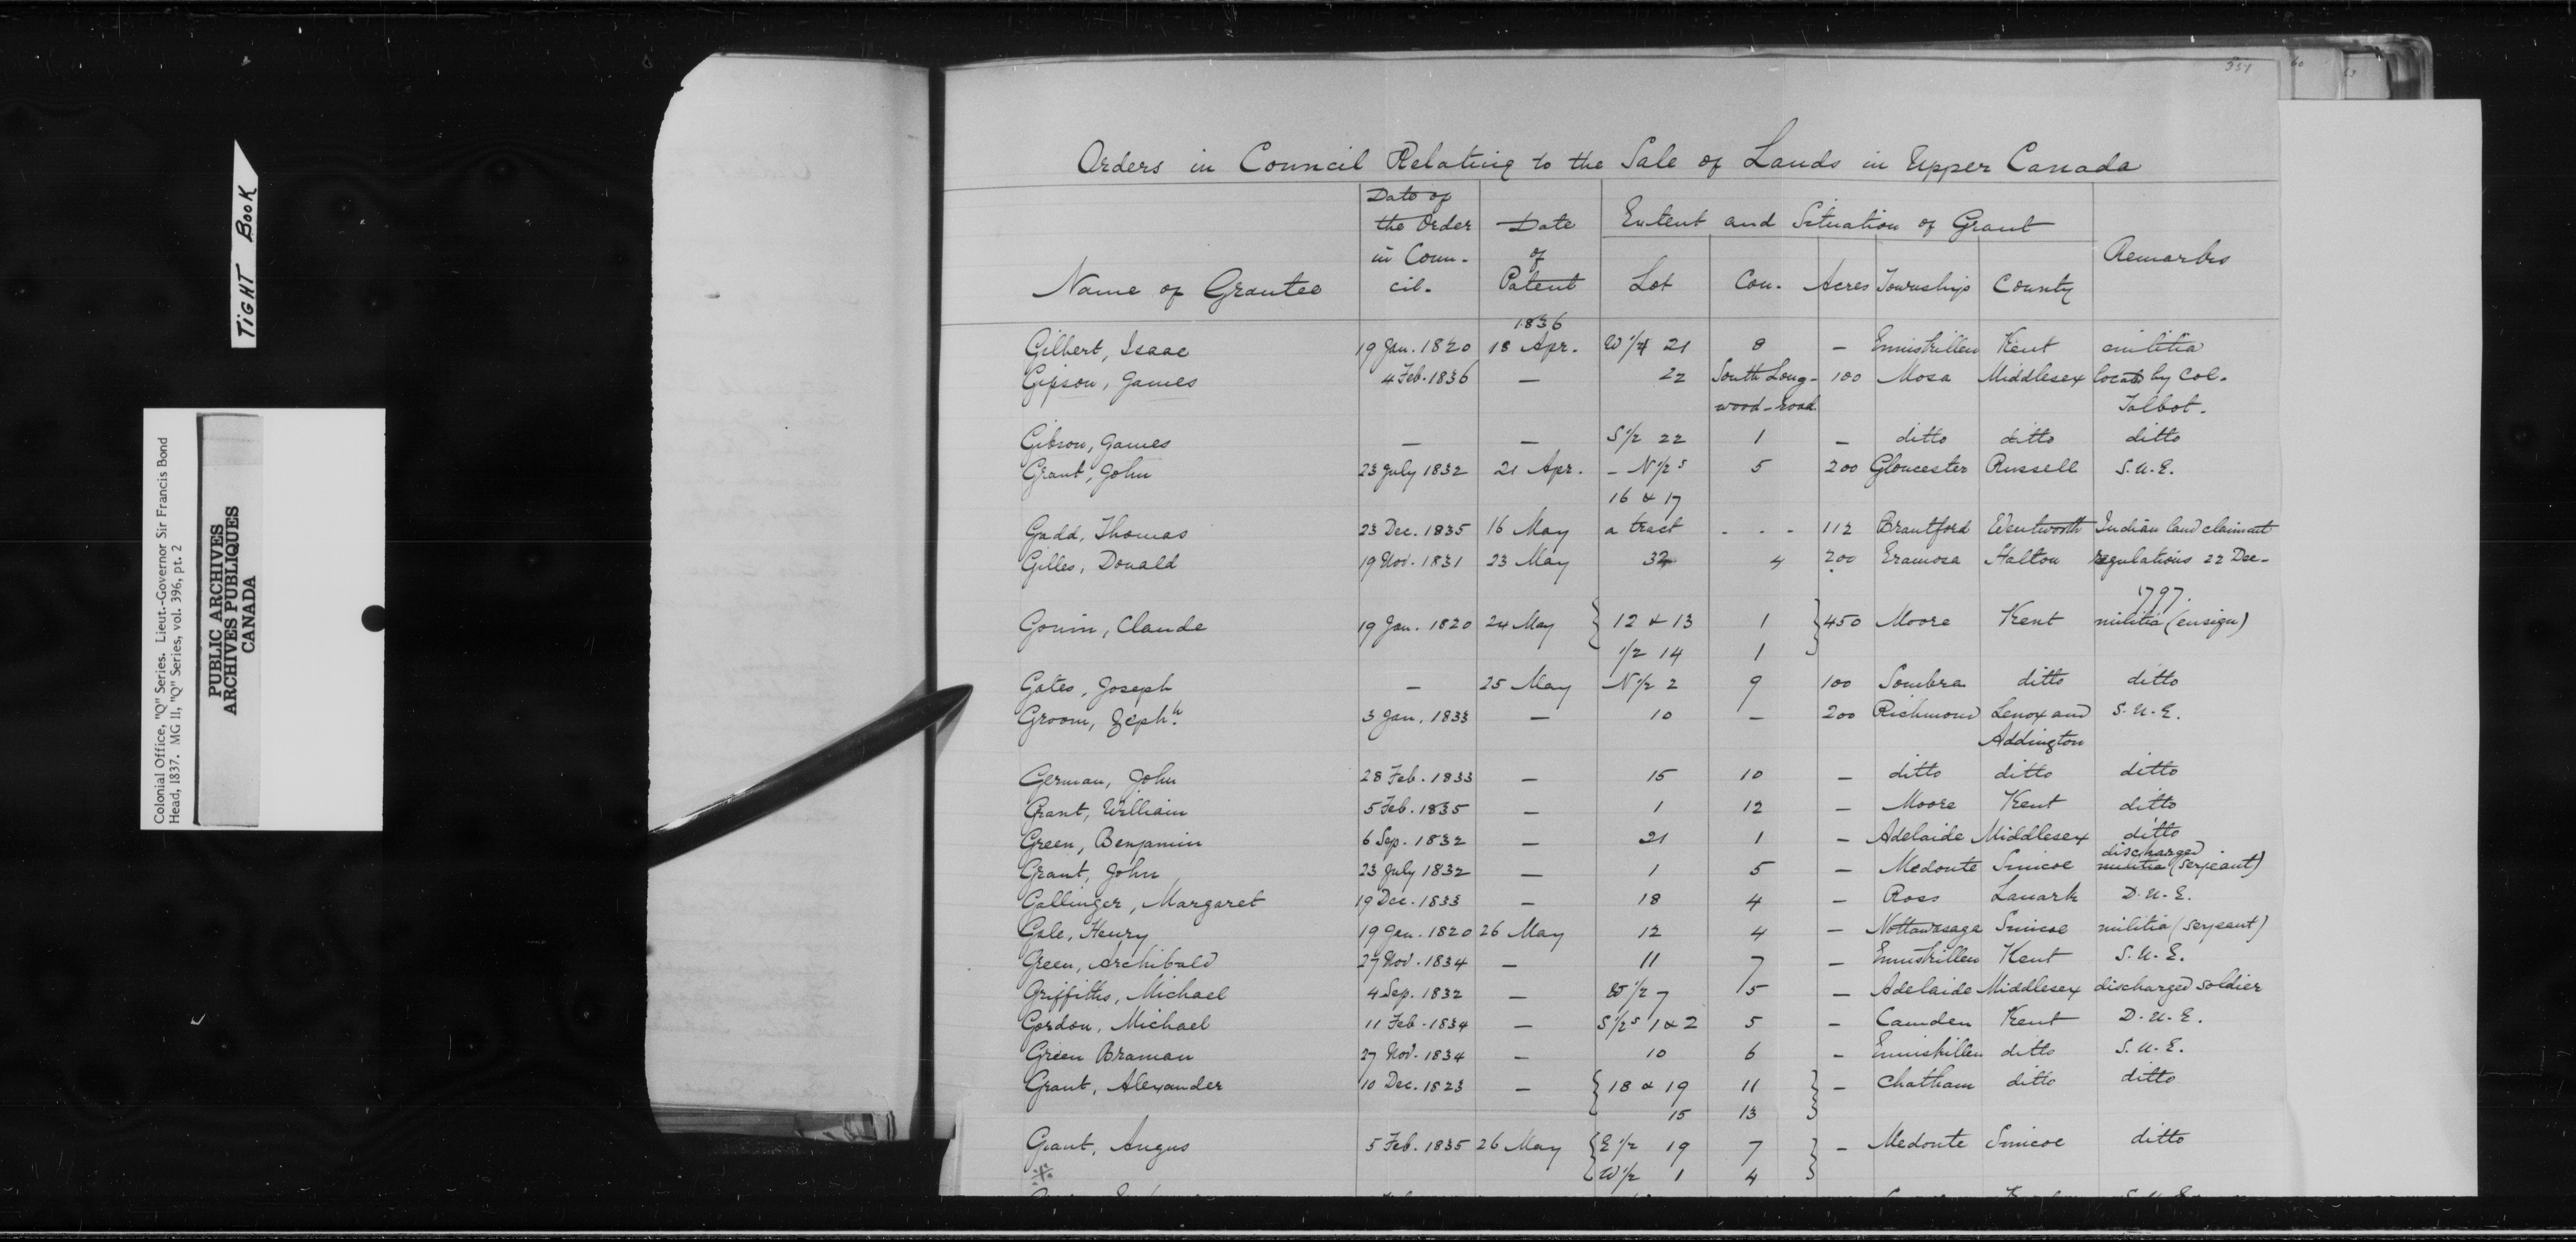 554
60
Orders in Council Relating to the Sale of Lands in Upper Canada
Name of Grantee | Date of the Order in Coun- cil. | Date of Patent | Extent and Situation of Grant | Remarks
Lot | Con. | Acres | Townships | County
1836
Gilbert, Isaac | 19 Jan. 1820 | 18 Apr. | W 1/4 21 | 8 | — | Enniskillen | Kent | militia
Gipson, James | 4 Feb. 1836 | — | 22 | South Long- | 100 | Mosa | Middlesex | located by Col.
wood-road | Talbot.
Gibson, James | — | — | S 1/2 22 | 1 | — | ditto | ditto | ditto
Grant, John | 23 July 1832 | 21 Apr. | - N 1/2 s | 5 | 200 | Gloucester | Russell | S.U.E.
16 & 17
Gadd, Thomas | 23 Dec. 1835 | 16 May | a tract | - - - | 112 | Brantford | Wentworth | Indian land claimant
Gilles, Donald | 19 Nov. 1831 | 23 May | 32 | 4 | 200 | Eramosa | Halton | regulations 22 Dec-
1797.
Gouin, Claude | 19 Jan. 1820 | 24 May | { 12 & 13 | 1 | } 450 | Moore | Kent | militia (ensign)
1/2 14 | 1
Gates, Joseph | — | 25 May | N 1/2 2 | 9 | 100 | Sombra | ditto | ditto
Groom, Zeph h. | 3 Jan. 1833 | — | 10 | — | 200 | Richmond | Lenox and | S.U.E.
Addington
German, John | 28 Feb. 1833 | — | 15 | 10 | — | ditto | ditto | ditto
Grant, William | 5 Feb. 1835 | — | 1 | 12 | — | Moore | Kent | ditto
Green, Benjamin | 6 Sep. 1832 | — | 21 | 1 | — | Adelaide | Middlesex | ditto
discharged
Grant, John | 23 July 1832 | — | 1 | 5 | — | Medonte | Simcoe | militia (serjeant)
Gallinger, Margaret | 19 Dec. 1833 | — | 18 | 4 | — | Ross | Lanark | D.U.E.
Gale, Henry | 19 Jan. 1820 | 26 May | 12 | 4 | — | Nottawasaga | Simcoe | militia (serjeant)
Green, Archibald | 27 Nov. 1834 | — | 11 | 7 | — | Enniskillen | Kent | S.U.E.
Griffiths, Michael | 4 Sep. 1832 | — | W 1/2 7 | 5 | — | Adelaide | Middlesex | discharged soldier
Gordon, Michael | 11 Feb. 1834 | — | S 1/2 s 1 & 2 | 5 | — | Camden | Kent | D.U.E.
Green Braman | 27 Nov. 1834 | — | 10 | 6 | — | Enniskillen | ditto | S.U.E.
Grant, Alexander | 10 Dec. 1823 | — | { 18 & 19 | 11 | } — | Chatham | ditto | ditto
15 | 13
Grant, Angus | 5 Feb. 1835 | 26 May | { E 1/2 19 | 7 | } — | Medonte | Simcoe | ditto
W 1/2 1 | 4
TIGHT BOOK
Colonial Office, "Q" Series. Lieut.-Governor Sir Francis Bond
Head, 1837. MG 11, "Q" Series, vol. 396, pt. 2
PUBLIC ARCHIVES
ARCHIVES PUBLIQUES
CANADA